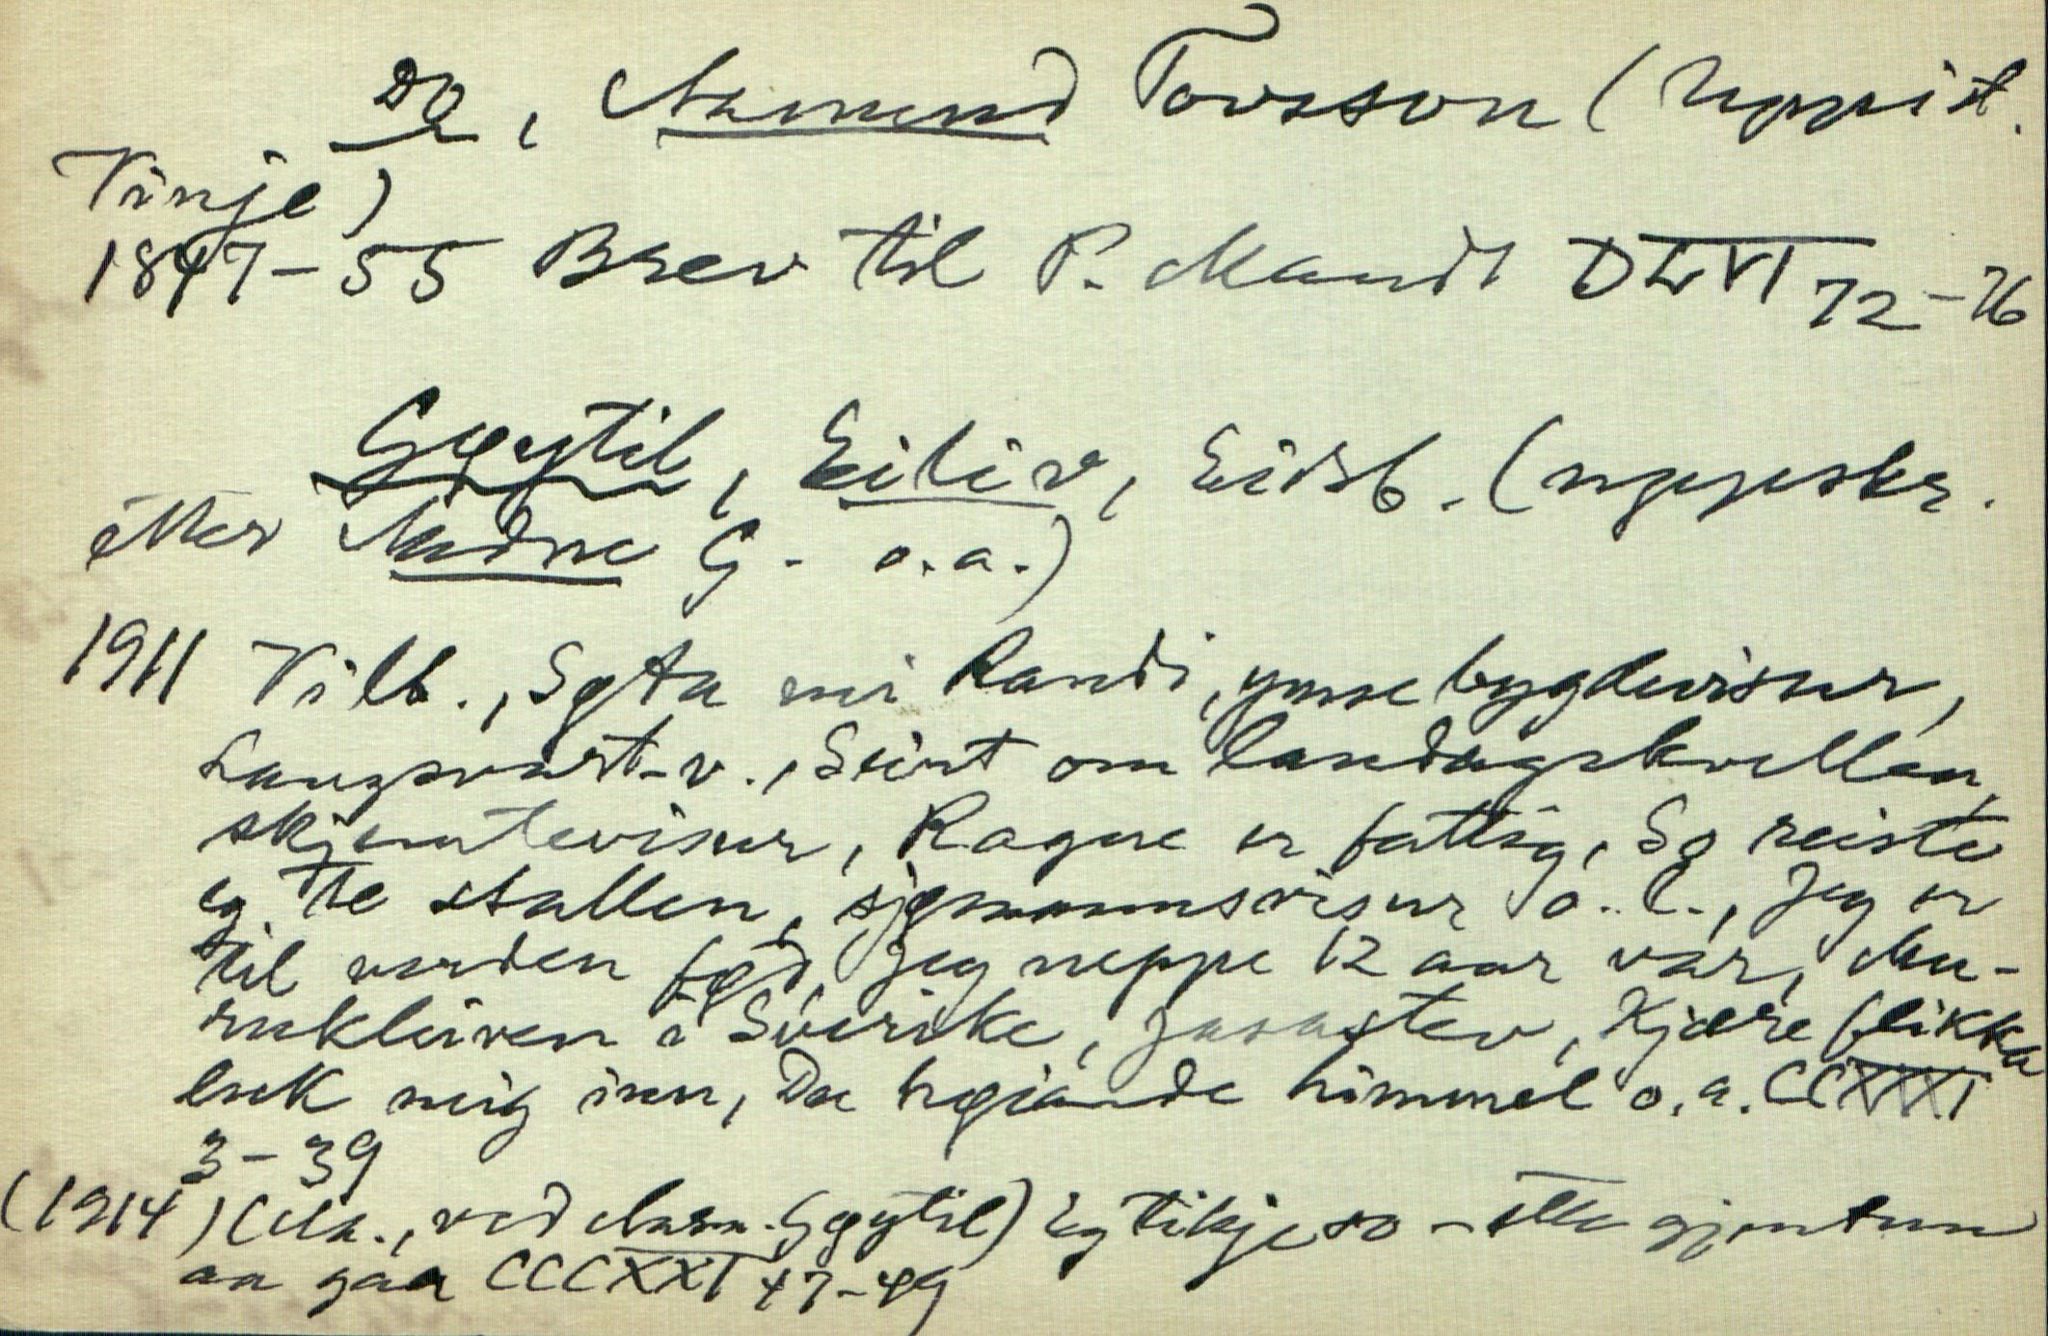 Do, Aamund Torsson (Uppist.
Vinje)
1847-55 Brev til P. Mandt DLVI 72-76
Gøytil, Eiliv, Eidsb. (uppskr.
etter Aadne G. o.a.)
1911 Villb., Søta mi Randi, ymse bygdevisur,
Langsvart-v., Seint om laudagskvellen,
skjemtevisur, Ragne er fattig, So reiste
eg te stallen, sjømannsvisur o.l., Jeg er
til verden fød, Jeg neppe 12 aar var,
i Sverike, Jasastev, Kjære flikka
luk mig inn, Du høiande himmel o.a. CCXXXI
3-39
(1914) (Ua., ved Aasm. Gøytil) Eg tikje so - itte gjentun
aa gaa CCCXXI 47-49